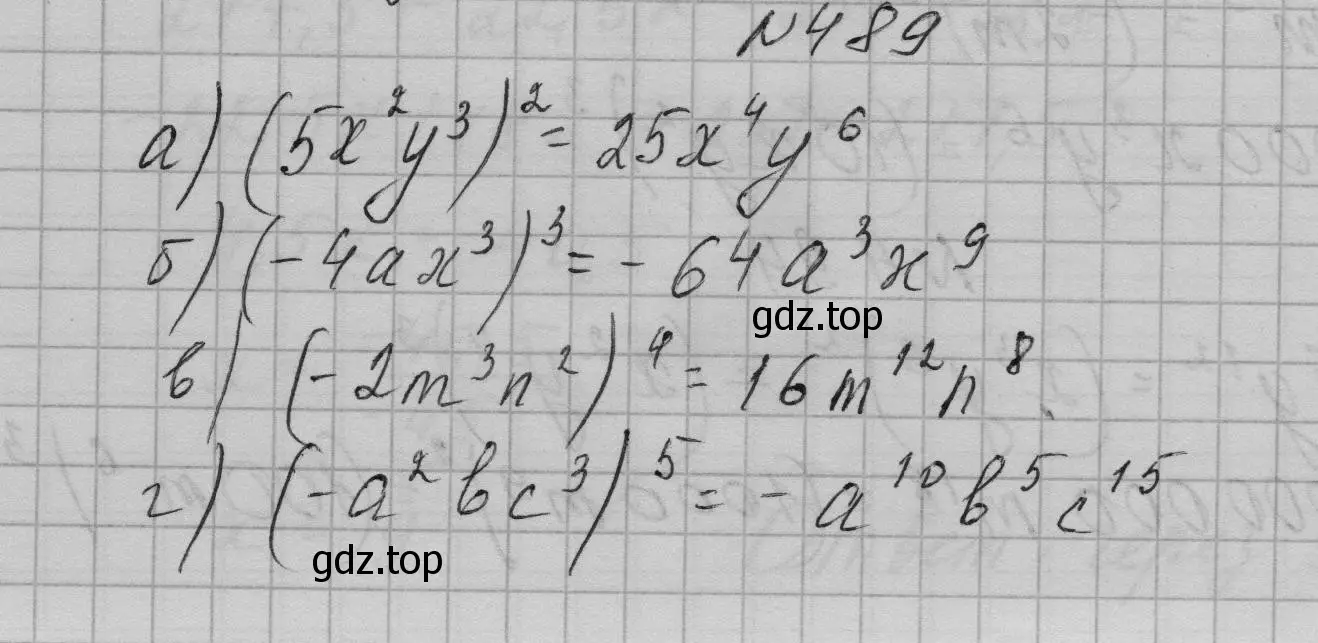 N489
а) (5x²y³)² = 25x⁴y⁶
б) (-4ax³)³ = -64a³x⁹
gdz.top
в) (-2m³n²)⁴ = 16m¹²n⁸.
г) (-a²bc³)⁵ = -a¹⁰b⁵c¹⁵
gdz.top